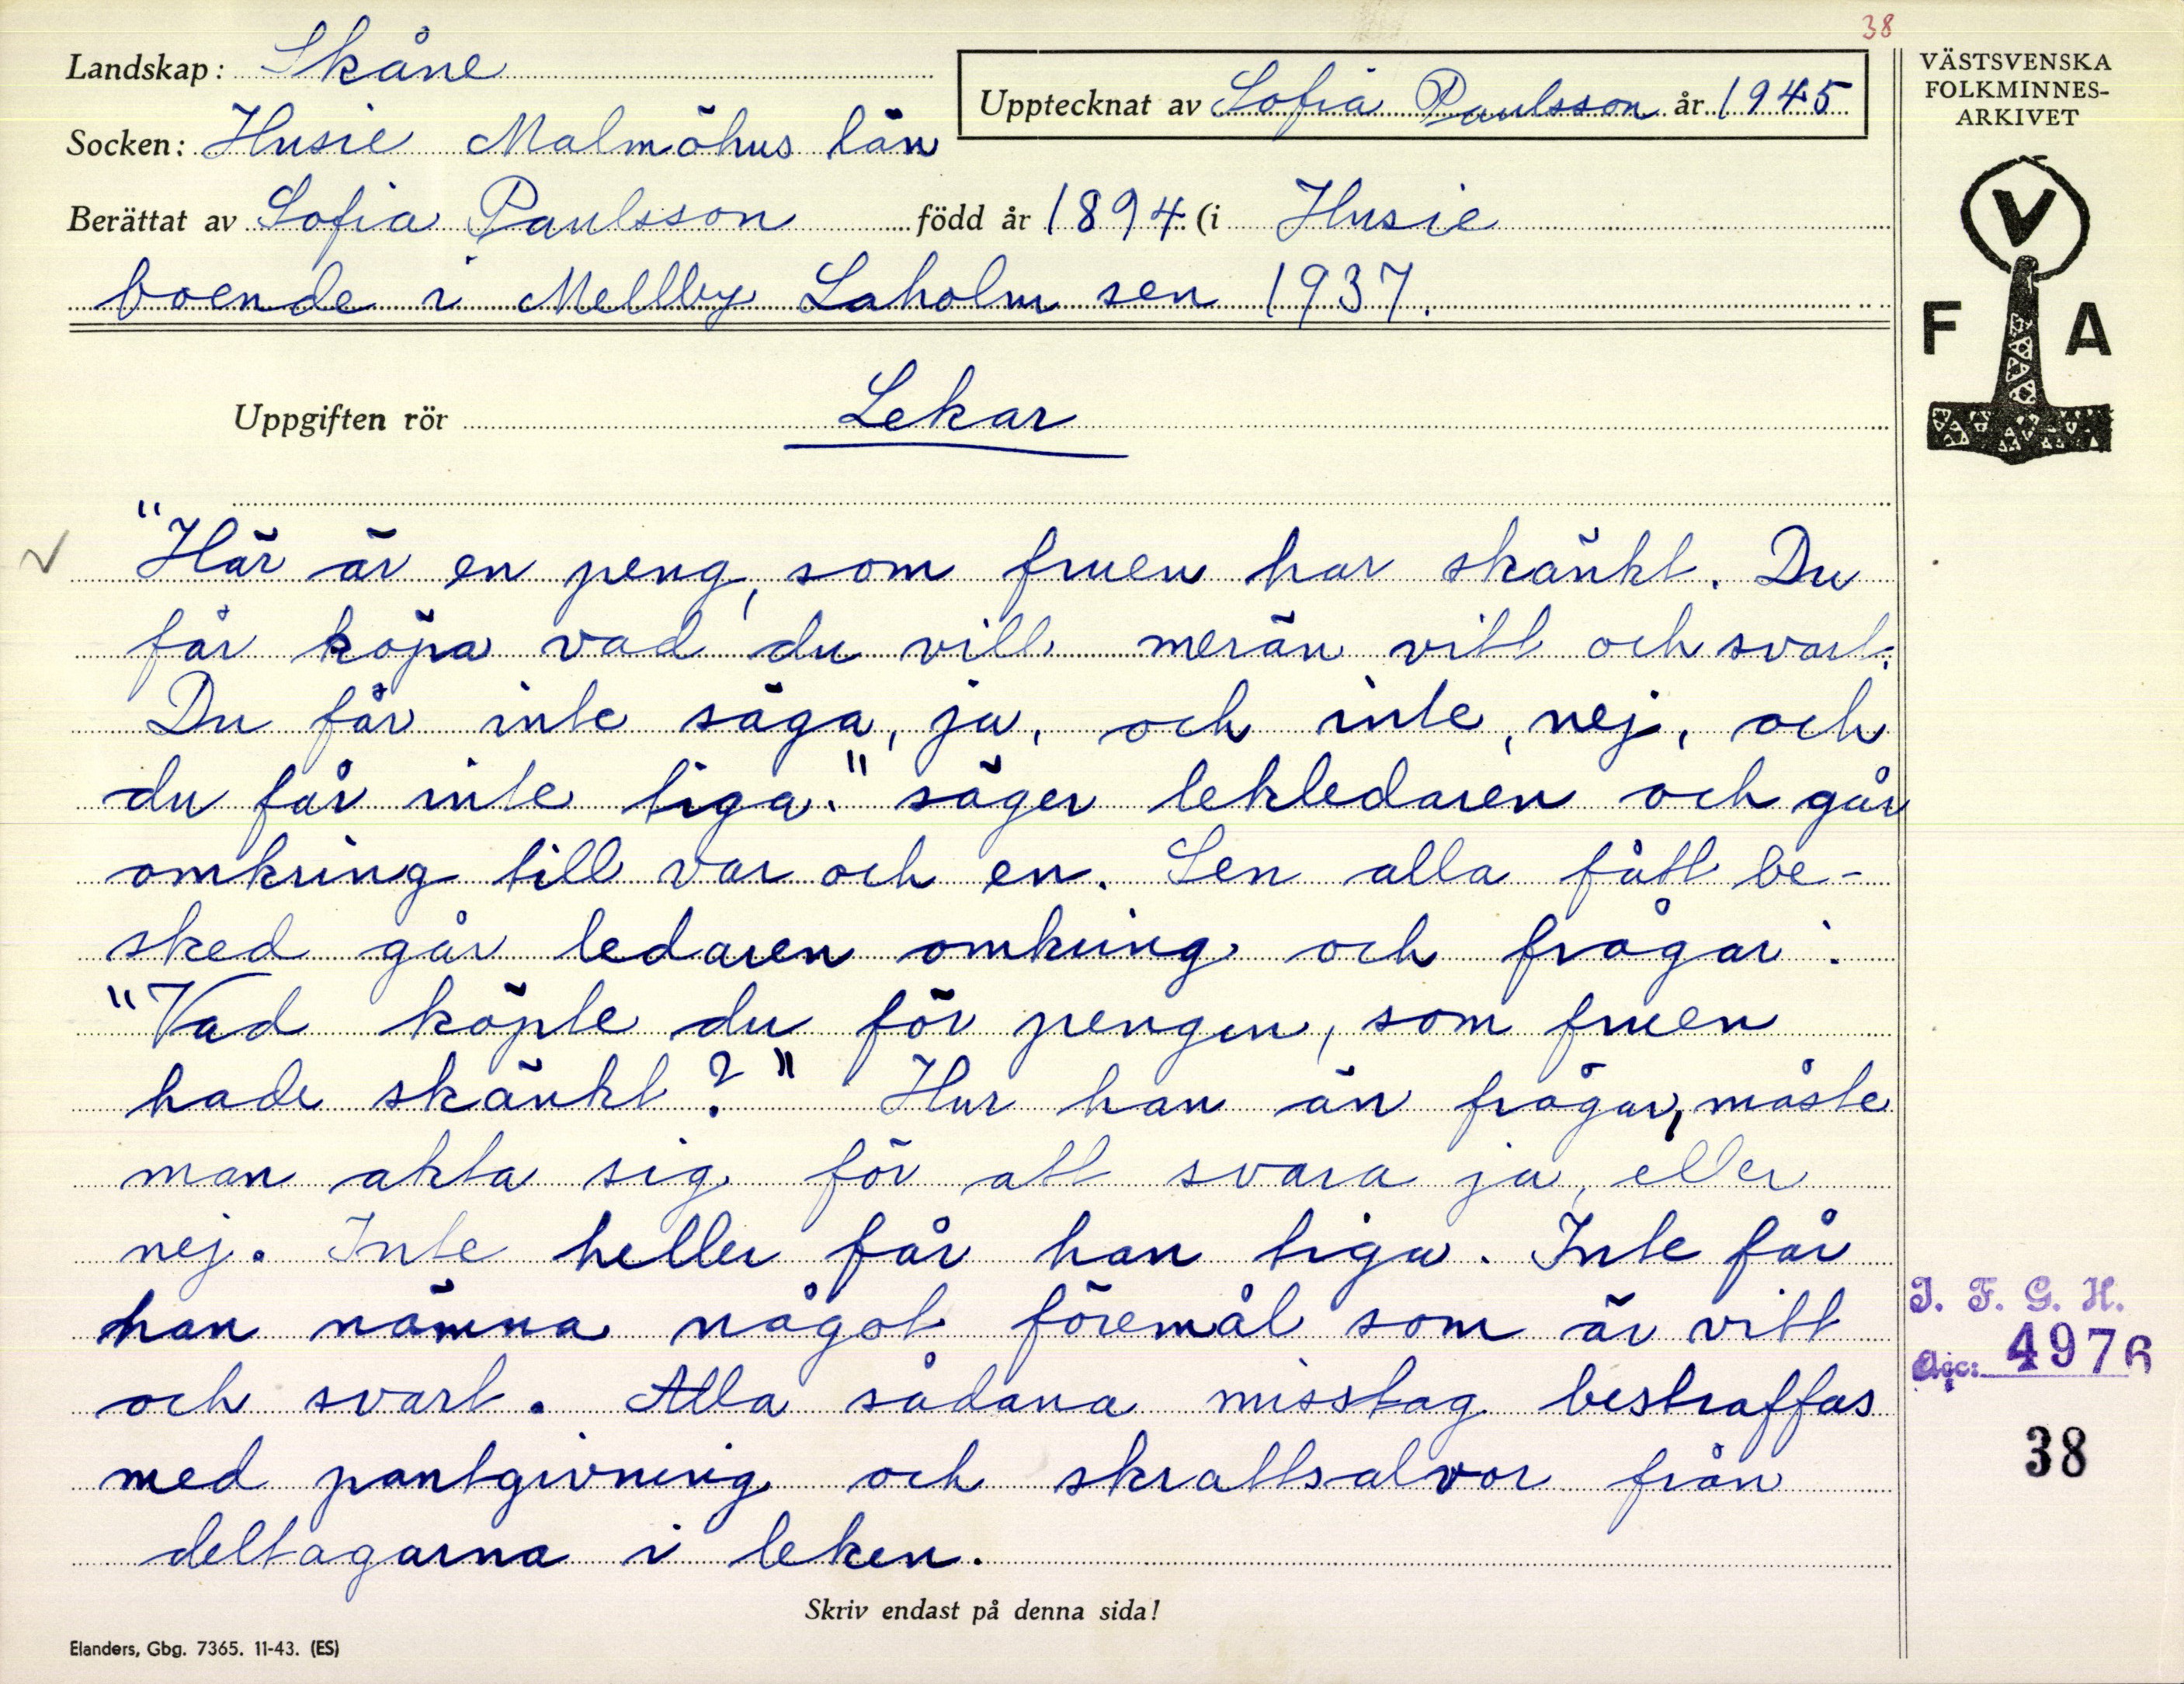 38
Landskap: Skåne
Upptecknat av Sofia Paulsson år 1945
Socken: Husie Malmöhus län
Berättat av Sofia Paulsson född år 1894 (i Husie
boende i Mellby Laholm sen 1937.
VÄSTSVENSKA
FOLKMINNES-
ARKIVET
V
F A
Uppgiften rör Lekar
"Här är en peng, som fruen har skänkt. Du
får köpa vad du vill merän vitt och svart.
Du får inte säga, ja, och inte, nej, och
du får inte tiga." säger lekledaren och går
omkring till var och en. Sen alla fått be-
sked går ledaren omkring och frågar:
"Vad köpte du för pengen, som fruen
hade skänkt?" Hur han än frågar, måste
man akta sig för att svara ja, eller
nej. Inte heller får han tiga. Inte får
han nämna något föremål som är vitt
och svart. Alla sådana misstag bestraffas
med pantgivning och skrattsalvor från
deltagarna i leken.
I. F. G. H.
Acc: 4976
38
Skriv endast på denna sida!
Elanders, Gbg. 7365. 11-43. (ES)